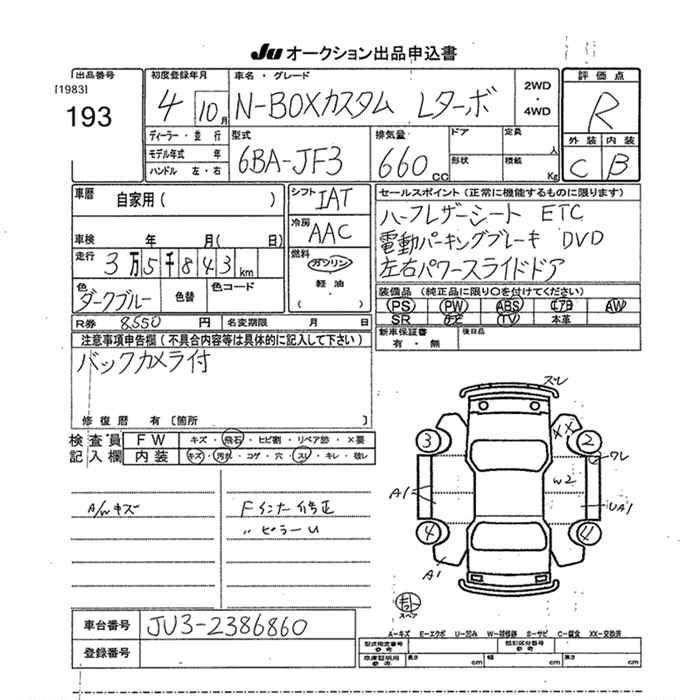 JU オークション出品申込書
出品番号
[1983]
193
初度登録年月
4 10月
車名・グレード
N-BOXカスタム Lターボ
2WD
・
4WD
評価点
R
外装 内装
C B
ディーラー・並行
モデル年式 年
ハンドル 左・右
型式
6BA-JF3
排気量
660 CC
ドア
形状
定員 人
積載 Kg
車歴 自家用( )
車検 年 月( 日)
走行 3万5千843km
シフト IAT
冷房 AAC
燃料
ガソリン
軽油
( )
色 ダークブルー
色替
色コード
R券 8,550円
名変期限 月 日
セールスポイント(正常に機能するものに限ります)
ハーフレザーシート ETC
電動パーキングブレーキ DVD
左右パワースライドドア
装備品(純正品に限り○を付けてください)
PS PW ABS エアB AW
SR ナビ TV 本革
新車保証書 有・無
後日品
注意事項申告欄(不具合内容等は具体的に記入して下さい)
バックカメラ付
修復歴 有〔箇所 〕
検査員記入欄
FW キズ・飛石・ヒビ割・リペア跡・×要
内装 キズ・汚れ・コゲ・穴・スレ・キレ・破レ
A/Wキズ
Fインナー修正
〃ピラーU
スレ
XX
3
2
ワレ
W2
A1
UA1
4
4
A1
スペア
車台番号 JU3-2386860
登録番号
A-キズ E-エクボ U-凹み W-補修跡 S-サビ C-腐食 XX-交換済
型式指定番号 参考
類別区分番号 参考
車庫証明用 参考
長さ cm 幅 cm 高さ cm